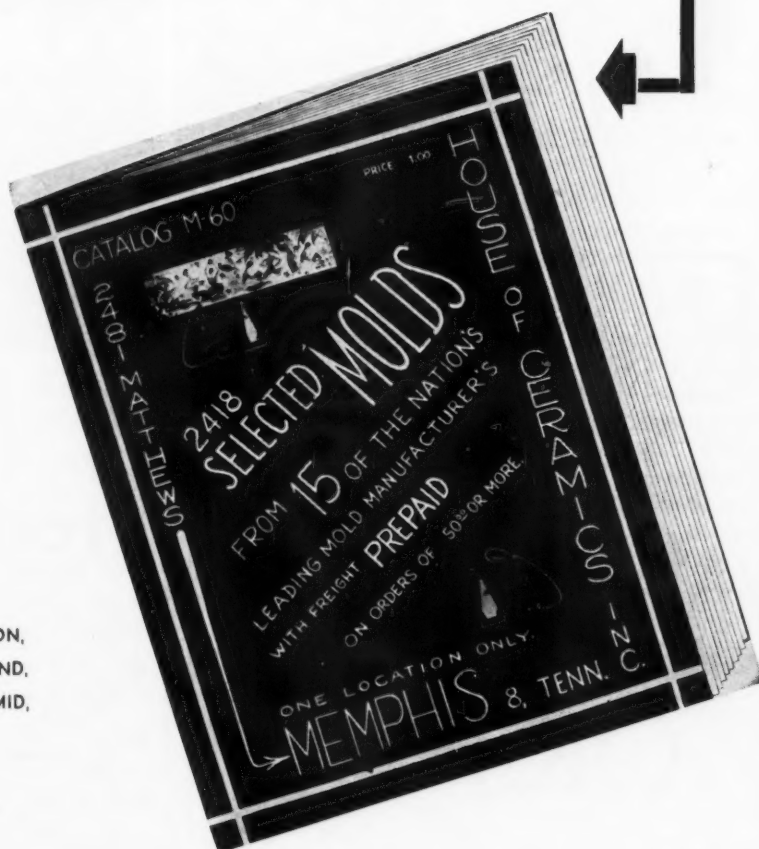 CATALOG M-60
PRICE 1.00
2481 MATTHEWS
HOUSE OF CERAMICS INC.
2418
SELECTED MOLDS
FROM 15 OF THE NATION'S
LEADING MOLD MANUFACTURER'S
WITH FREIGHT PREPAID
ON ORDERS OF 50.00 OR MORE.
ONE LOCATION ONLY.
MEMPHIS 8, TENN.
ON,
ND,
MID,